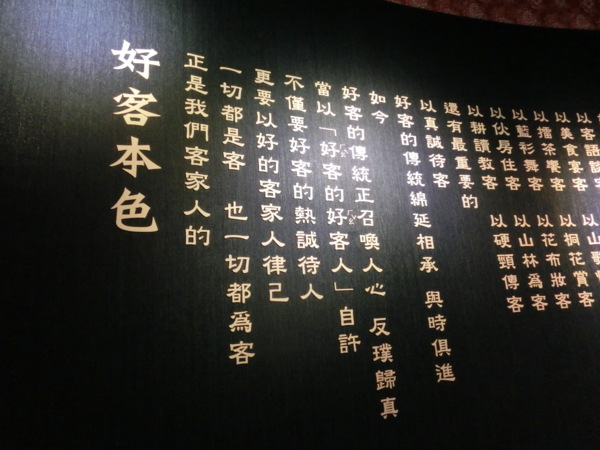 以客語談客 以山歌
以美食宴客 以桐花賞客
以擂茶饗客 以花布妝客
以藍彩舞客 以山林為客
以伙房住客 以硬頸傳客
以耕讀教客
還有最重要的
以真誠待客
好客的傳統綿延相承 與時俱進
如今
好客的傳統正召喚人心 反璞歸真
當以「好客的好客人」自許
不僅要好客的熱誠待人
更要以好的客家人律己
一切都是客 也一切都為客
正是我們客家人的
好客本色